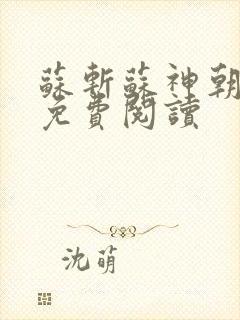 蘇斬蘇神朝
免費閱讀
沈萌